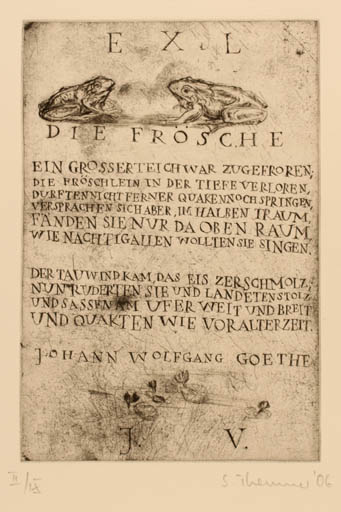 EX L
DIE FRÖSCHE
EIN GROSSER TEICH WAR ZUGEFROREN;
DIE FRÖSCHLEIN IN DER TIEFE VERLOREN,
DURFTEN NICHT FERNER QUAKEN NOCH SPRINGEN,
VERSPRACHEN SICH ABER, IM HALBEN TRAUM,
FÄNDEN SIE NUR DA OBEN RAUM,
WIE NACHTIGALLEN WOLLTEN SIE SINGEN.
DER TAUWIND KAM, DAS EIS ZERSCHMOLZ;
NUN RUDERTEN SIE UND LANDETEN STOLZ
UND SASSEN AM UFER WEIT UND BREIT
UND QUAKTEN WIE VOR ALTER ZEIT.
JOHANN WOLFGANG GOETHE
J. V.
II/IX '06